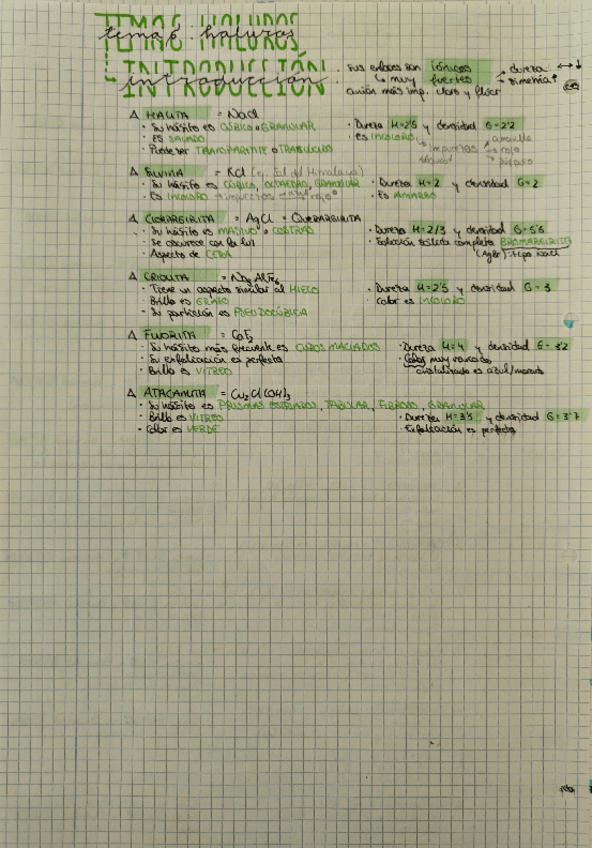 TEMA6 HALUROS
tema6. haluros
INTRODUCCIÓN
introducción.
· Sus enlaces son iónicos → dureza ↔↓
↳ muy fuertes → simetría↑
anión más imp. cloro y flúor
△ HALITA = NaCl
· Su hábito es CÚBICO o GRANULAR · Dureza H=2'5 y densidad G=2'2
· Es SALADO · es INCOLORO, impurezas amarillo
rojo
· Puede ser TRANSPARENTE o TRASLÚCIDO
△ SILVINA = KCl (ej. Sal del Himalaya)
· Su hábito es CÚBICO, OCTAEDRO, GRANULAR · Dureza H=2 y densidad G=2
· Es INCOLORO → impurezas → azul rojo · Es AMARGO
△ CLORARGIRITA = AgCl = QUERARGIRITA
· Su hábito es MASIVO o COSTRAS · Dureza H=2/3 y densidad G=5'5
· Se oscurece con la luz · Solución sólida completa BROMARGIRITA
· Aspecto de CERA (AgBr)
△ CRIOLITA = Na3AlF6
· Tiene un aspecto similar al HIELO · Dureza H=2'5 y densidad G=3
· Brillo es GRASO · Color es INCOLORO
· Su partición es PSEUDOCÚBICA
△ FLUORITA = CaF2
· Su hábito más frecuente es CUBOS MACLADOS · Dureza H=4 y densidad G=3'2
· Su exfoliación es perfecta · Color muy variado,
· Brillo es VÍTREO cristalizado es azul/morado
△ ATACAMITA = Cu2Cl(OH)3
· Su hábito es PRISMAS ESTRIADOS, TABULAR, FIBROSO, GRANULAR
· Brillo es VÍTREO · Dureza H=3'5 y densidad G=3'7
· Color es VERDE · Exfoliación es perfecta